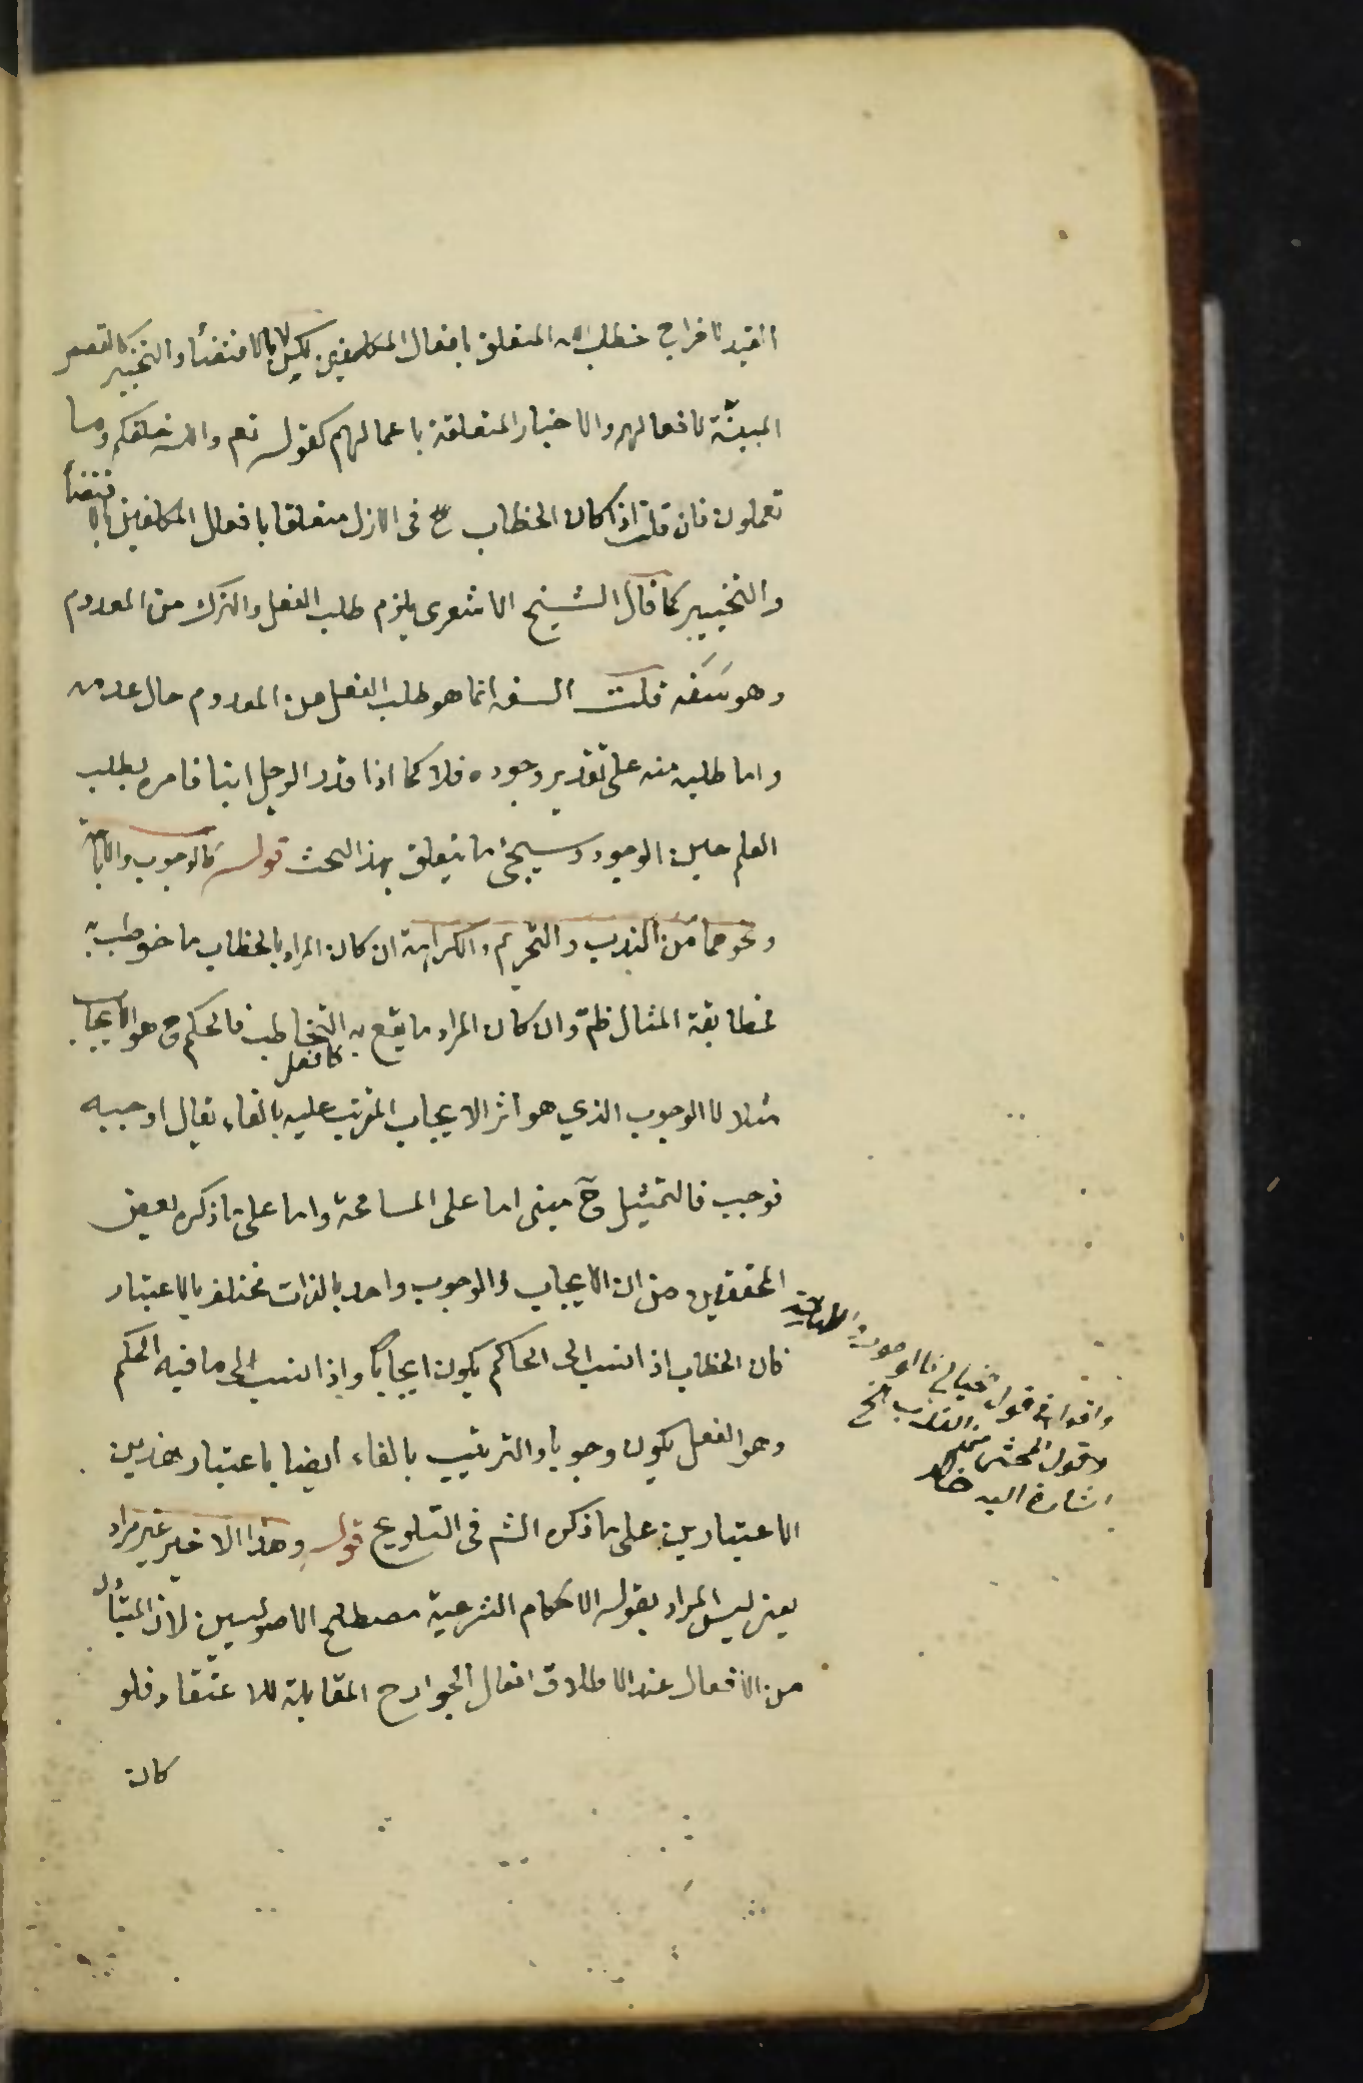 القيد لاخراج خطاب الله المتعلق بافعال المكلفين لكن لا بالاقتضأ والتخيير كالقصص
المبينّة لافعالهم والاخبار المتعلقة باعمالهم كقوله تعم والله خلقكم وما
تعملون فان قلت اذا كان الخطاب فى الازل متعلقا بافعال المكلفين بالاقتضأ
والتخيير كما قال الشيخ الاشعرى يلزم طلب الفعل والترك من المعدوم
وهو سَفَه قلت السفه انما هو طلب الفعل من المعدوم حال عدمه
واما طلبه منه على تقدير وجوده فلا كما اذا قدر الرجل ابنا فامره بطلب
العلم حين الوجود وسيجئ ما يتعلق بهذا البحث قوله كالوجوب والاباحة
ونحوهما من الندب والتحريم والكراهة ان كان المراد بالخطاب ما خوطب به
فمطابقة المثال ظم وان كان المراد ما يقع به التخاطب فالحكم ح هو الايجاب
مثلا لا الوجوب الذي هو اثر الايجاب المترتب عليه بالفاء يقال اوجبه
كالفعل
فوجب فالتمثيل ح مبنى اما على المسامحة واما على ما ذكره بعض
المحققين من ان الايجاب والوجوب واحد بالذات مختلف بالاعتبار
فان الخطاب اذا نسب الى الحاكم يكون ايجابا واذا نسب الى ما فيه الحكم
وهو الفعل يكون وجوبا والترتيب بالفاء ايضا باعتبار هذين
الاعتبارين على ما ذكره الشم فى التلويح قوله وهذا الاخير غير مراد
يعنى ليس المراد بقوله الاحكام الشرعية مصطلح الاصوليين لان المتبادر
من الافعال عند الاطلاق افعال الجوارح المقابلة للاعتقاد فلو
كان
قول خيالي فالوجود
وقول المحشى
اشارة اليه